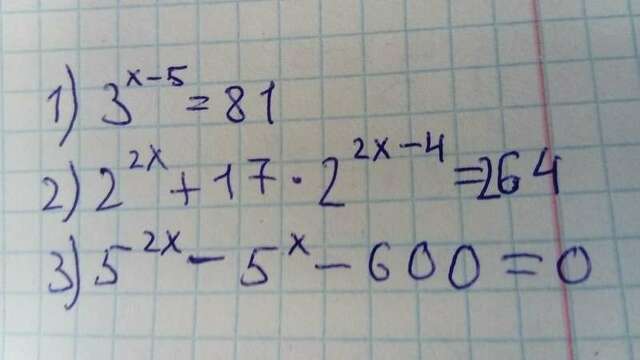 1) 3^{x-5} = 81
2) 2^{2x} + 17 · 2^{2x-4} = 264
3) 5^{2x} - 5^{x} - 600 = 0